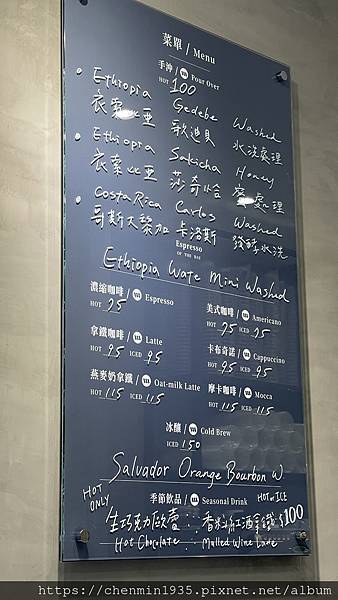 菜單 / Menu
手沖 / Pour Over
HOT 100
Ethiopia Gedebe Washed
衣索比亞 歌迪貝 水洗處理
Ethiopia Sakicha Honey
衣索比亞 莎奇恰 蜜處理
Costa Rica Carlos Washed
哥斯大黎加 卡洛斯 發酵水洗
Espresso
OF THE DAY
Ethiopia Wate Mini Washed
濃縮咖啡 / Espresso 美式咖啡 / Americano
HOT 75 HOT 75 ICED 75
拿鐵咖啡 / Latte 卡布奇諾 / Cappuccino
HOT 95 ICED 95 HOT 95 ICED 95
燕麥奶拿鐵 / Oat-milk Latte 摩卡咖啡 / Mocca
HOT 115 ICED 115 HOT 115 ICED 115
冰釀 / Cold Brew
ICED 150
Salvador Orange Bourbon W.
HOT ONLY 季節飲品 / Seasonal Drink HOT or ICE
生巧克力歐蕾 : 香料紅酒拿鐵 $100
Hot Chocolate : Mulled Wine Latte
https://chenmin1935.pixnet.net/album